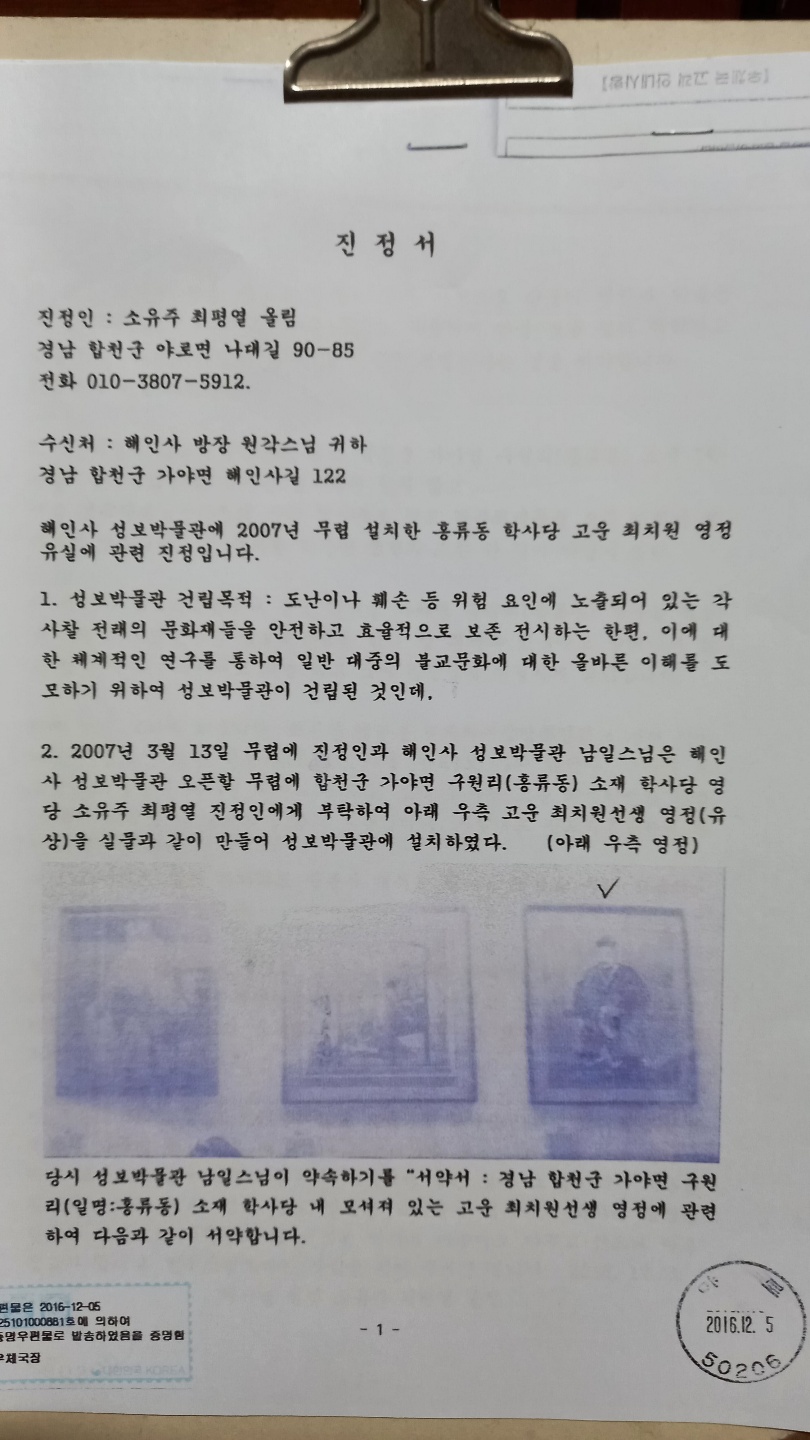 진 정 서
진정인 : 소유주 최평열 올림
경남 합천군 야로면 나대길 90-85
전화 010-3807-5912.
수신처 : 해인사 방장 원각스님 귀하
경남 합천군 가야면 해인사길 122
해인사 성보박물관에 2007년 무렵 설치한 홍류동 학사당 고운 최치원 영정
유실에 관련 진정입니다.
1. 성보박물관 건립목적 : 도난이나 훼손 등 위험 요인에 노출되어 있는 각
사찰 전래의 문화재들을 안전하고 효율적으로 보존 전시하는 한편, 이에 대
한 체계적인 연구를 통하여 일반 대중의 불교문화에 대한 올바른 이해를 도
모하기 위하여 성보박물관이 건립된 것인데,
2. 2007년 3월 13일 무렵에 진정인과 해인사 성보박물관 남일스님은 해인
사 성보박물관 오픈할 무렵에 합천군 가야면 구원리(홍류동) 소재 학사당 영
당 소유주 최평열 진정인에게 부탁하여 아래 우측 고운 최치원선생 영정(유
상)을 실물과 같이 만들어 성보박물관에 설치하였다. (아래 우측 영정)
당시 성보박물관 남일스님이 약속하기를 "서약서 : 경남 합천군 가야면 구원
리(일명:홍류동) 소재 학사당 내 모셔져 있는 고운 최치원선생 영정에 관련
하여 다음과 같이 서약합니다.
편물은 2016-12-05
25101000881호에 의하여
증명우편물로 발송하였음을 증명함
우체국장
- 1 -
2016.12. 5
50206